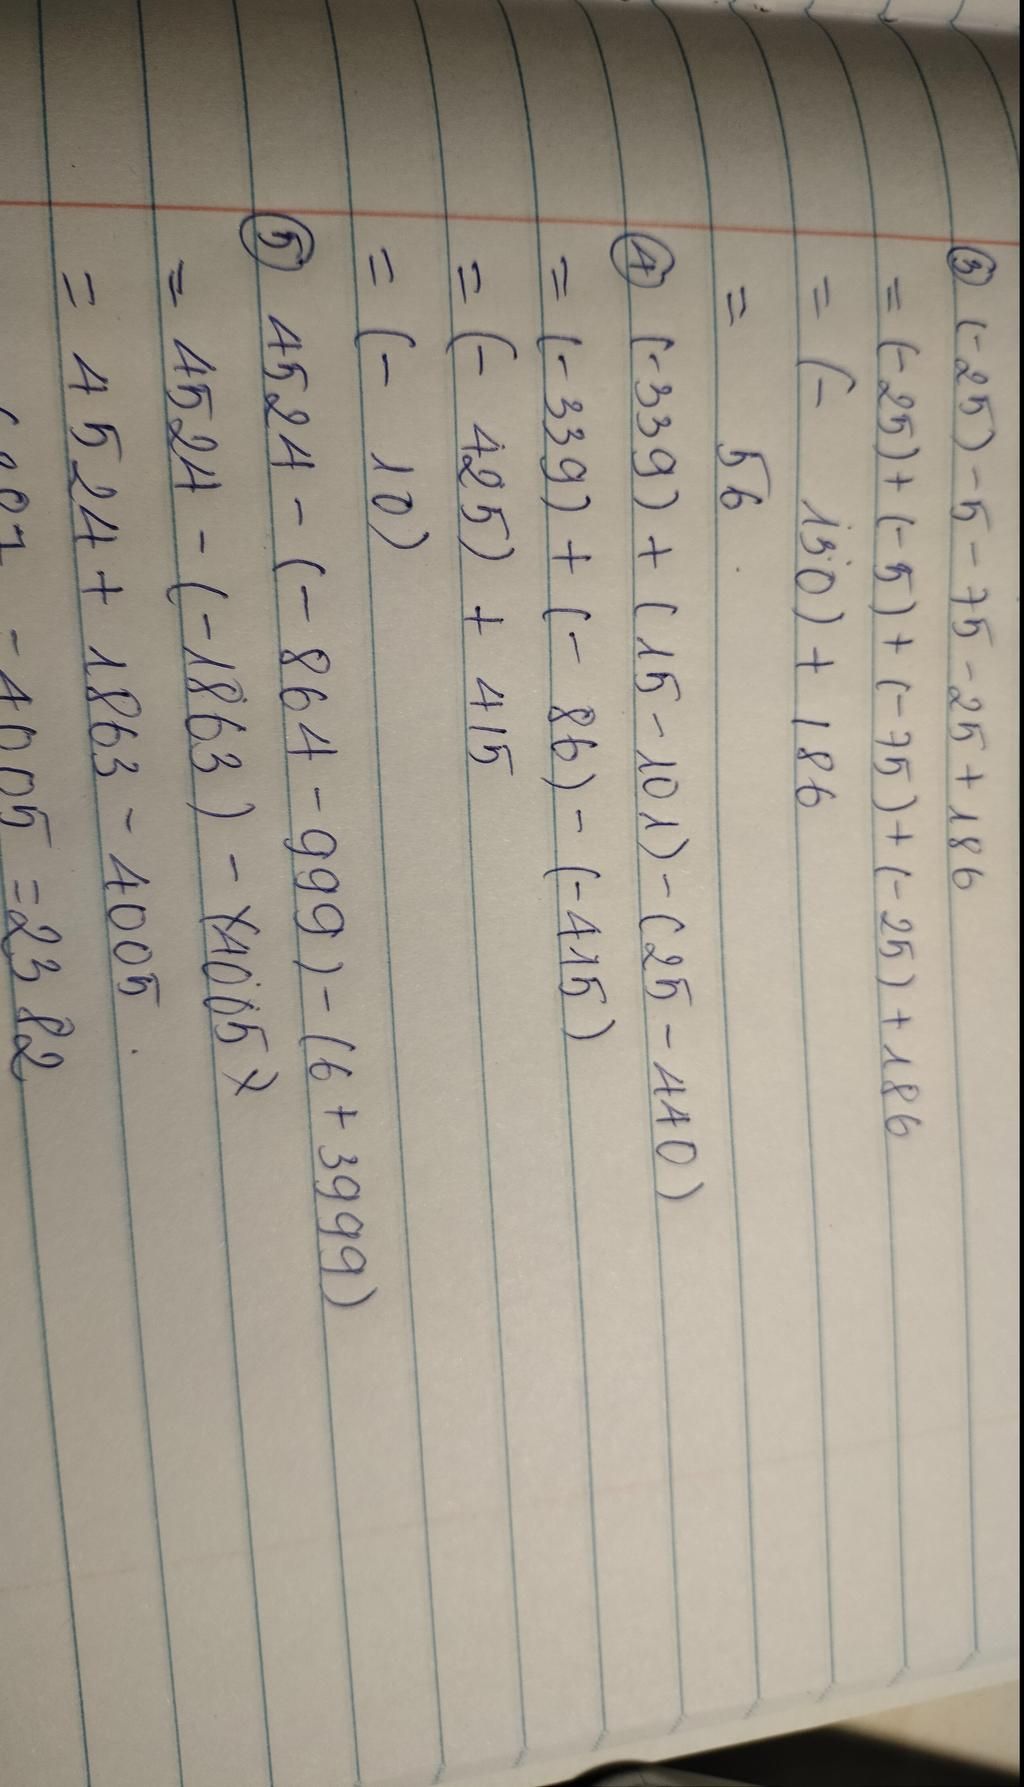 ③ (-25) - 5 - 75 - 25 + 186
= (-25) + (-5) + (-75) + (-25) + 186
= (- 130) + 186
= 56
④ (-339) + (15 - 101) - (25 - 440)
= (-339) + (- 86) - (-415)
= (- 425) + 415
= (- 10)
⑤ 4524 - (- 864 - 999) - (6 + 3999)
= 4524 - (-1863) - (4005)
= 4524 + 1863 - 4005
- 4005 = 2382